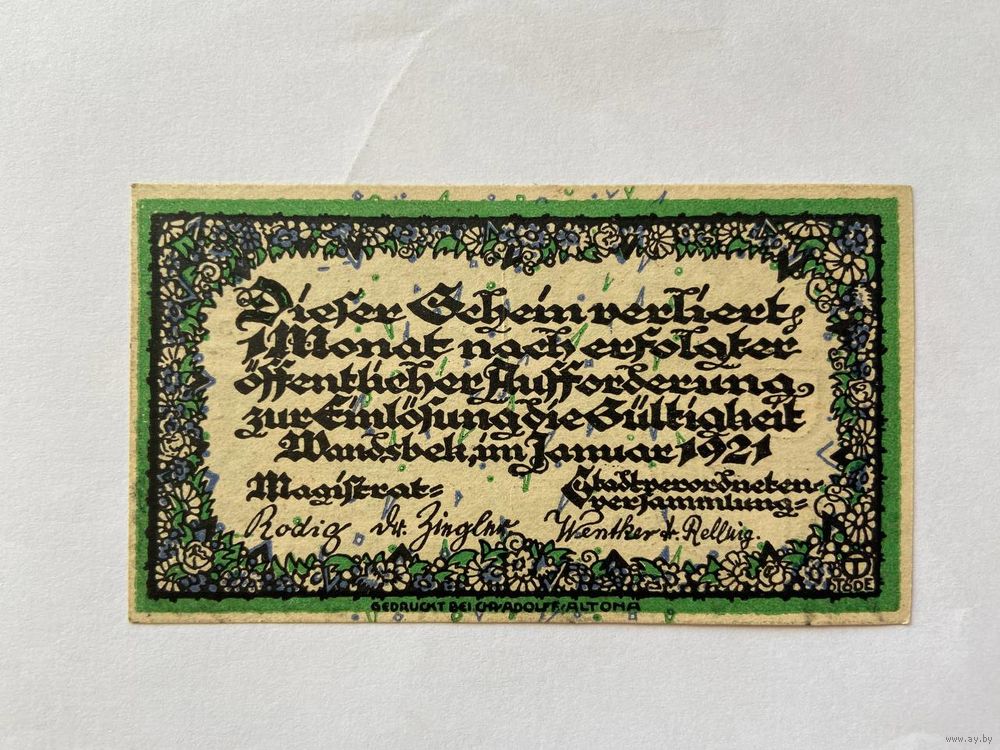 Dieser Schein verliert
1 Monat nach erfolgter
öffentlicher Aufforderung
zur Einlösung die Gültigkeit
Wandsbek, im Januar 1921
Magistrat= Stadtverordneten-
versammlung=
Rodig Dr. Ziegler Wentker
T
TÖDE
GEDRUCKT BEI CHR. ADOLFF-ALTONA
www.ay.by